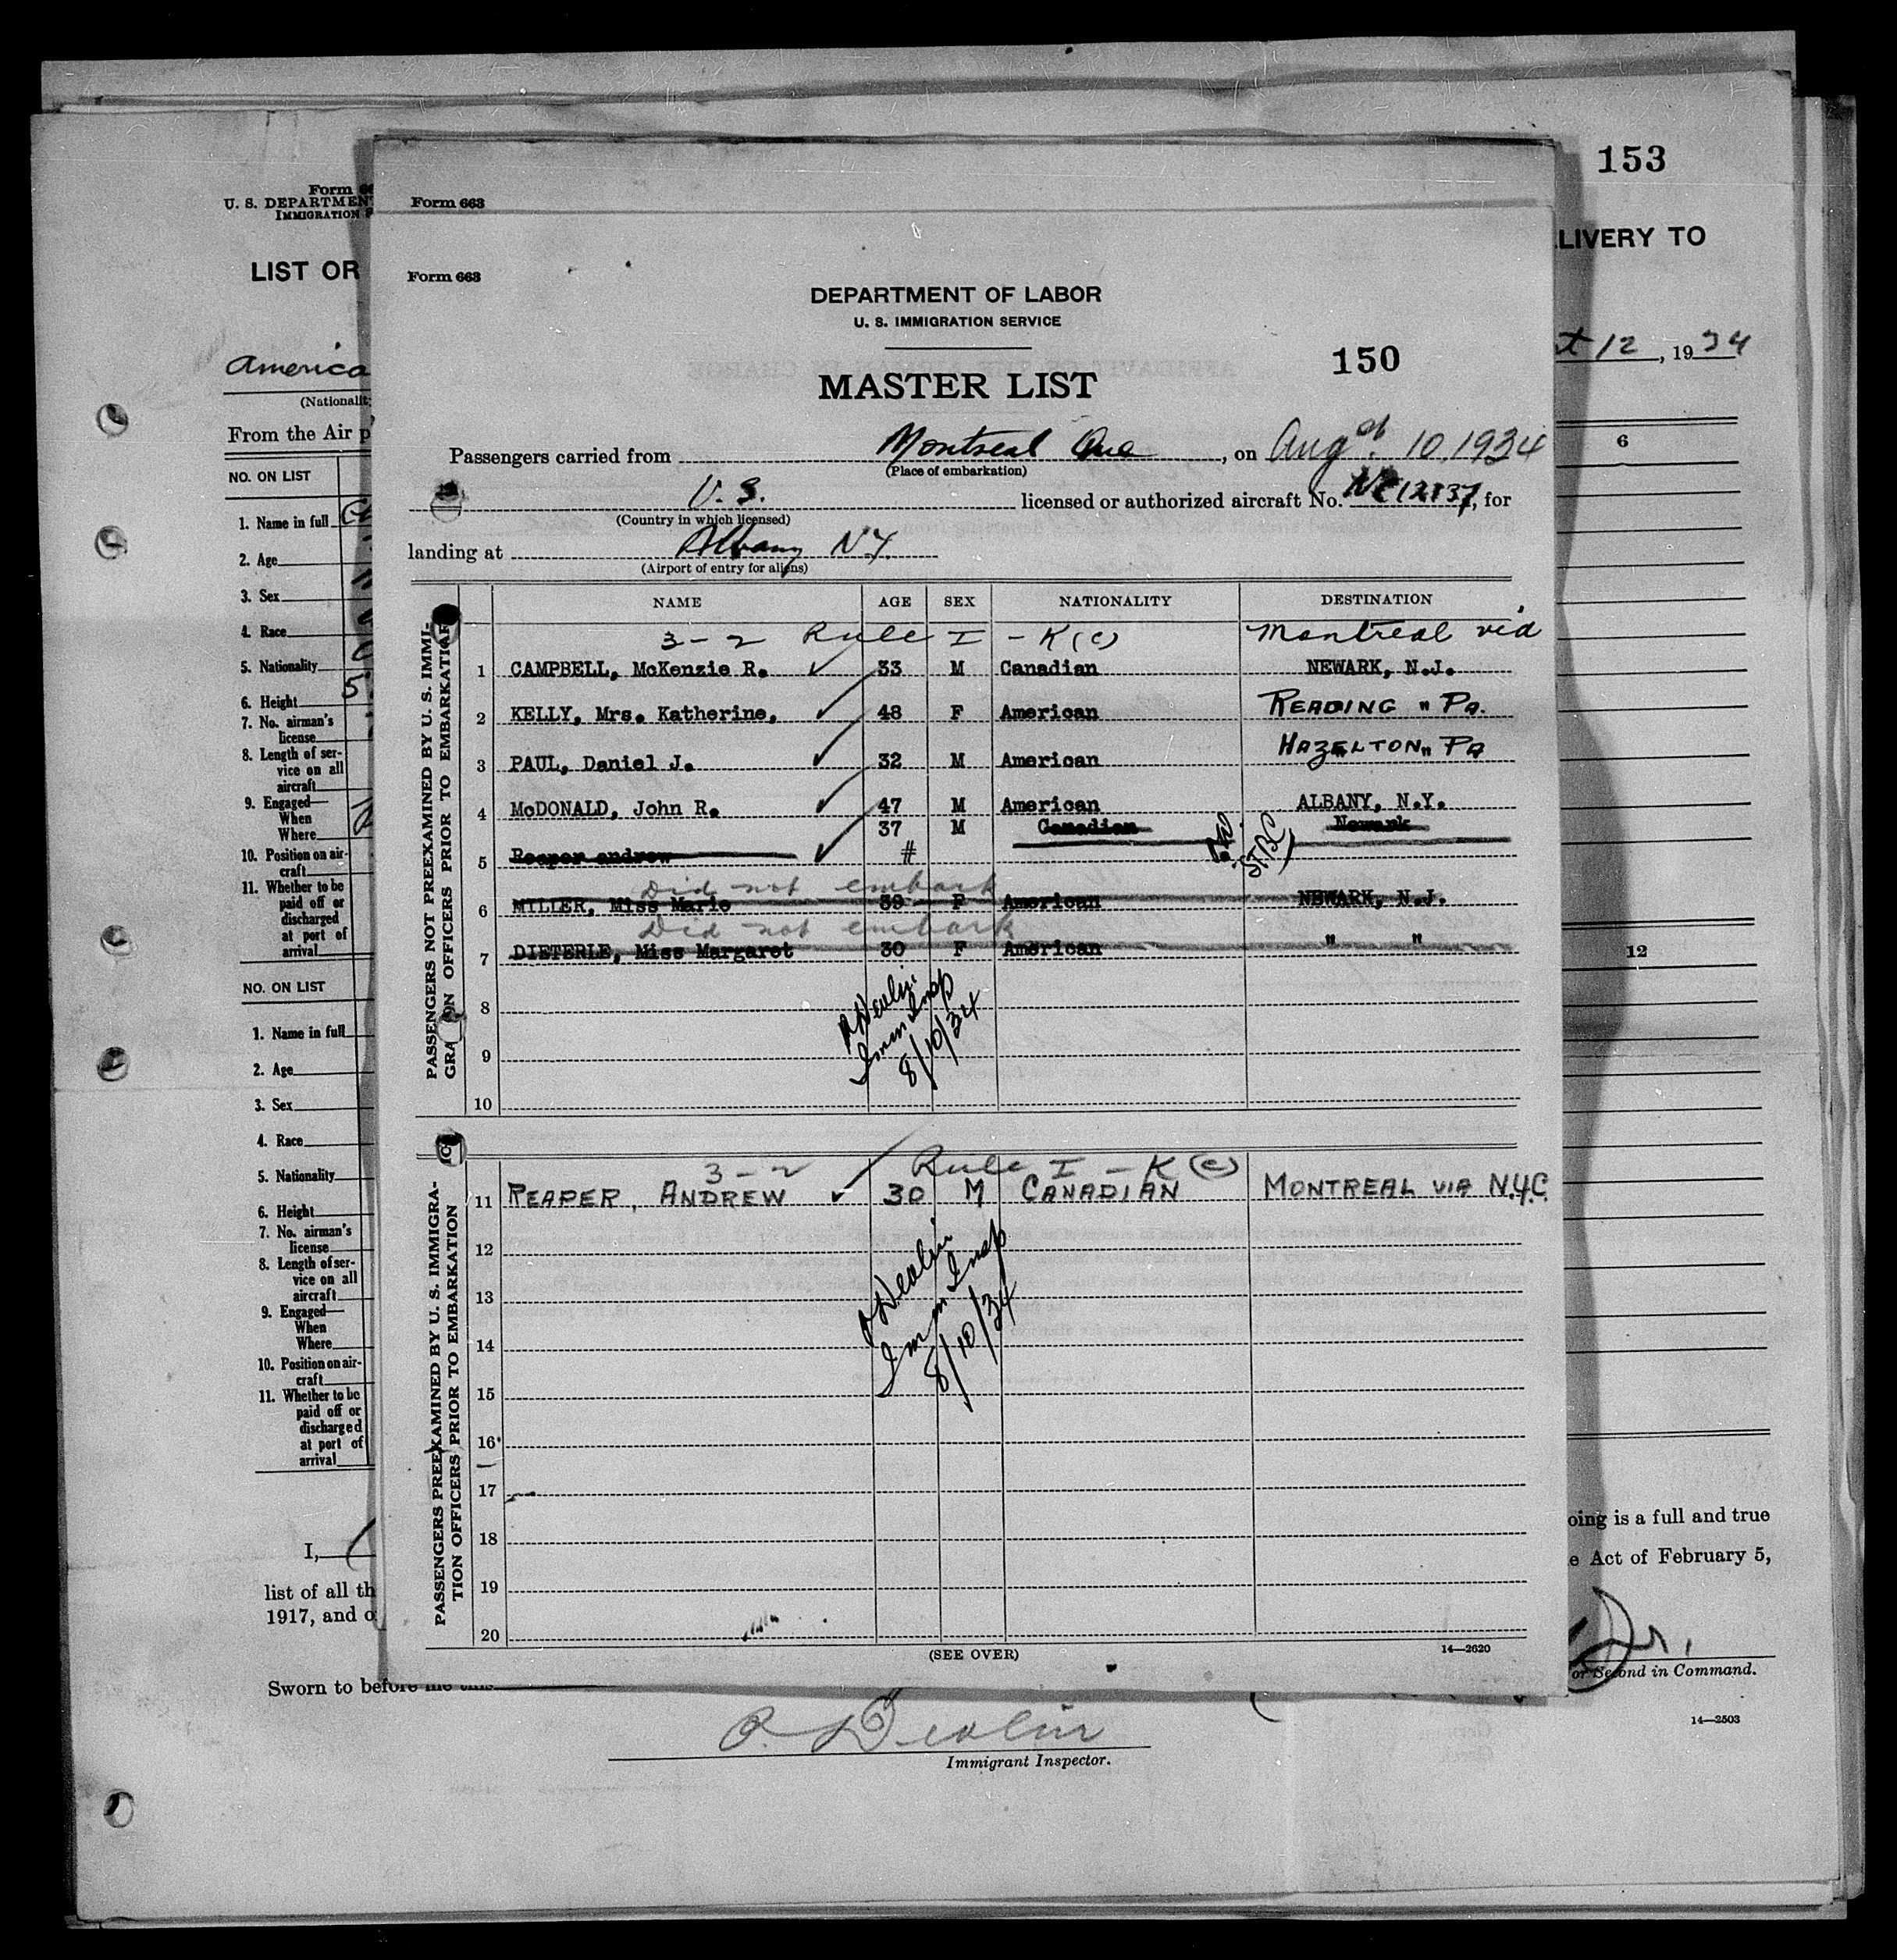 153
Form 66
U. S. DEPARTMEN
IMMIGRATION S
LIST OR
LIVERY TO
America
(Nationality
12, 1934
From the Air p
6
NO. ON LIST
1. Name in full
2. Age
3. Sex
4. Race
5. Nationality
5
6. Height
7. No. airman's
license
8. Length of ser-
vice on all
aircraft
9. Engaged—
When
Where
10. Position on air-
craft
11. Whether to be
paid off or
discharged
at port of
arrival
12
NO. ON LIST
1. Name in full
2. Age
3. Sex
4. Race
5. Nationality
6. Height
7. No. airman's
license
8. Length of ser-
vice on all
aircraft
9. Engaged—
When
Where
10. Position on air-
craft
11. Whether to be
paid off or
discharged
at port of
arrival
I,
oing is a full and true
list of all th
e Act of February 5,
1917, and o
or Second in Command.
Sworn to before me this
14—2503
O. Devlin
Immigrant Inspector.
Form 663
Form 663
DEPARTMENT OF LABOR
U. S. IMMIGRATION SERVICE
150
MASTER LIST
Passengers carried from Montreal Que, on Aug 10, 1934
(Place of embarkation)
U. S. licensed or authorized aircraft No. NC12137, for
(Country in which licensed)
landing at Albany NY.
(Airport of entry for aliens)
PASSENGERS NOT PREEXAMINED BY U. S. IMMI-
GRATION OFFICERS PRIOR TO EMBARKATION
NAME AGE SEX NATIONALITY DESTINATION
3-2 Rule I - K(c) Montreal via
1 CAMPBELL, McKenzie R. 33 M Canadian NEWARK, N.J.
2 KELLY, Mrs. Katherine, 48 F American READING " PA.
3 PAUL, Daniel J. 32 M American HAZELTON " PA
4 McDONALD, John R. 47 M American ALBANY, N.Y.
37 M Canadian Newark
5 Reaper andrew #
Did not embark
6 MILLER, Miss Marie 39 F American NEWARK, N.J.
Did not embark
7 DIETERLE, Miss Margaret 30 F American " "
8
9
10
O Devlin
Imm Insp
8/10/34
PASSENGERS PREEXAMINED BY U. S. IMMIGRA-
TION OFFICERS PRIOR TO EMBARKATION
3-2 Rule I - K(c)
11 REAPER, ANDREW 30 M CANADIAN MONTREAL VIA N.Y.C.
12
13
14
15
16
17
18
19
20
O Devlin
Imm Insp
8/10/34
(SEE OVER)
14—2620